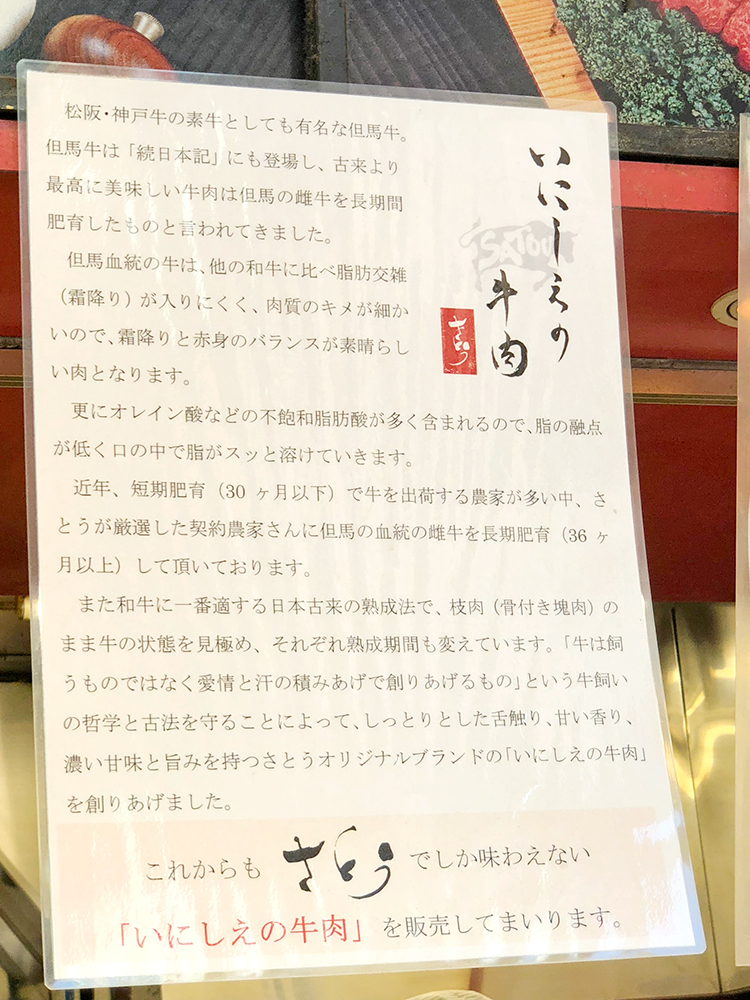 いにしえの
牛肉
SATOU
さとう
松阪・神戸牛の素牛としても有名な但馬牛。
但馬牛は「続日本記」にも登場し、古来より
最高に美味しい牛肉は但馬の雌牛を長期間
肥育したものと言われてきました。
但馬血統の牛は、他の和牛に比べ脂肪交雑
（霜降り）が入りにくく、肉質のキメが細か
いので、霜降りと赤身のバランスが素晴らし
い肉となります。
更にオレイン酸などの不飽和脂肪酸が多く含まれるので、脂の融点
が低く口の中で脂がスッと溶けていきます。
近年、短期肥育（30 ヶ月以下）で牛を出荷する農家が多い中、さ
とうが厳選した契約農家さんに但馬の血統の雌牛を長期肥育（36 ヶ
月以上）して頂いております。
また和牛に一番適する日本古来の熟成法で、枝肉（骨付き塊肉）の
まま牛の状態を見極め、それぞれ熟成期間も変えています。「牛は飼
うものではなく愛情と汗の積みあげで創りあげるもの」という牛飼い
の哲学と古法を守ることによって、しっとりとした舌触り、甘い香り、
濃い甘味と旨みを持つさとうオリジナルブランドの「いにしえの牛肉」
を創りあげました。
これからも さとう でしか味わえない
「いにしえの牛肉」を販売してまいります。